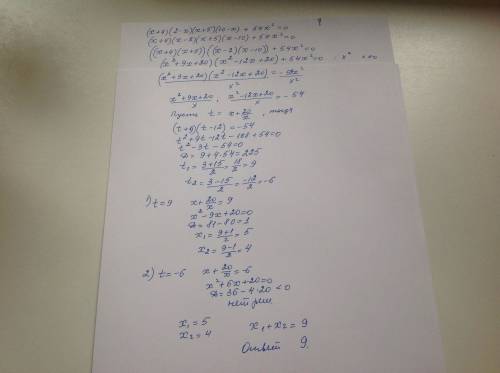 (x+4)(2-x)(x+5)(10-x) + 54x²=0
(x+4)(x-2)(x+5)(x-10)+54x²=0
((x+4)(x+5))((x-2)(x-10))+54x²=0
(x²+9x+20)(x²-12x+20)+54x²=0 : x² ≠0
(x²+9x+20)(x²-12x+20)/x² = -54x²/x²
x²+9x+20/x · x²-12x+20/x = -54
Пусть t = x+20/x, тогда
(t+9)(t-12)=-54
t²+9t-12t-108+54=0
t²-3t-54=0
D=9+4·54=225
t₁=3+15/2=18/2=9
t₂=3-15/2=-12/2=-6
1) t=9 x+20/x=9
x²-9x+20=0
D=81-80=1
x₁=9+1/2=5
x₂=9-1/2=4
2) t=-6 x+20/x=-6
x²+6x+20=0
D=36-4·20<0
нет реш
x₁=5
x₂=4 x₁+x₂=9
Ответ 9.